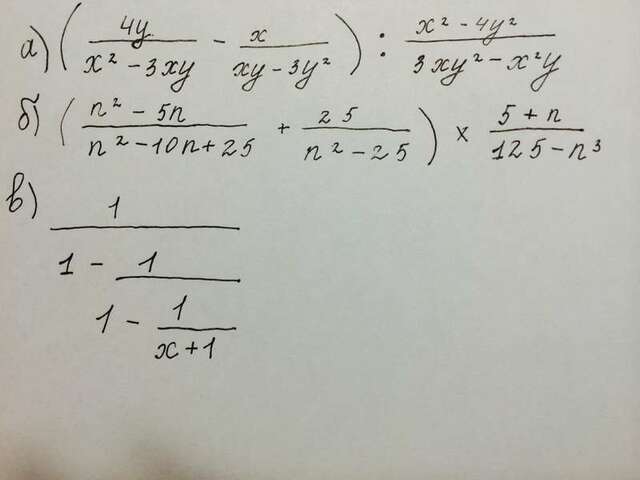 а) ( 4y / (x² - 3xy) - x / (xy - 3y²) ) : (x² - 4y²) / (3xy² - x²y)
б) ( (n² - 5n) / (n² - 10n + 25) + 25 / (n² - 25) ) × (5 + n) / (125 - n³)
в) 1 / (1 - 1 / (1 - 1 / (x + 1)))